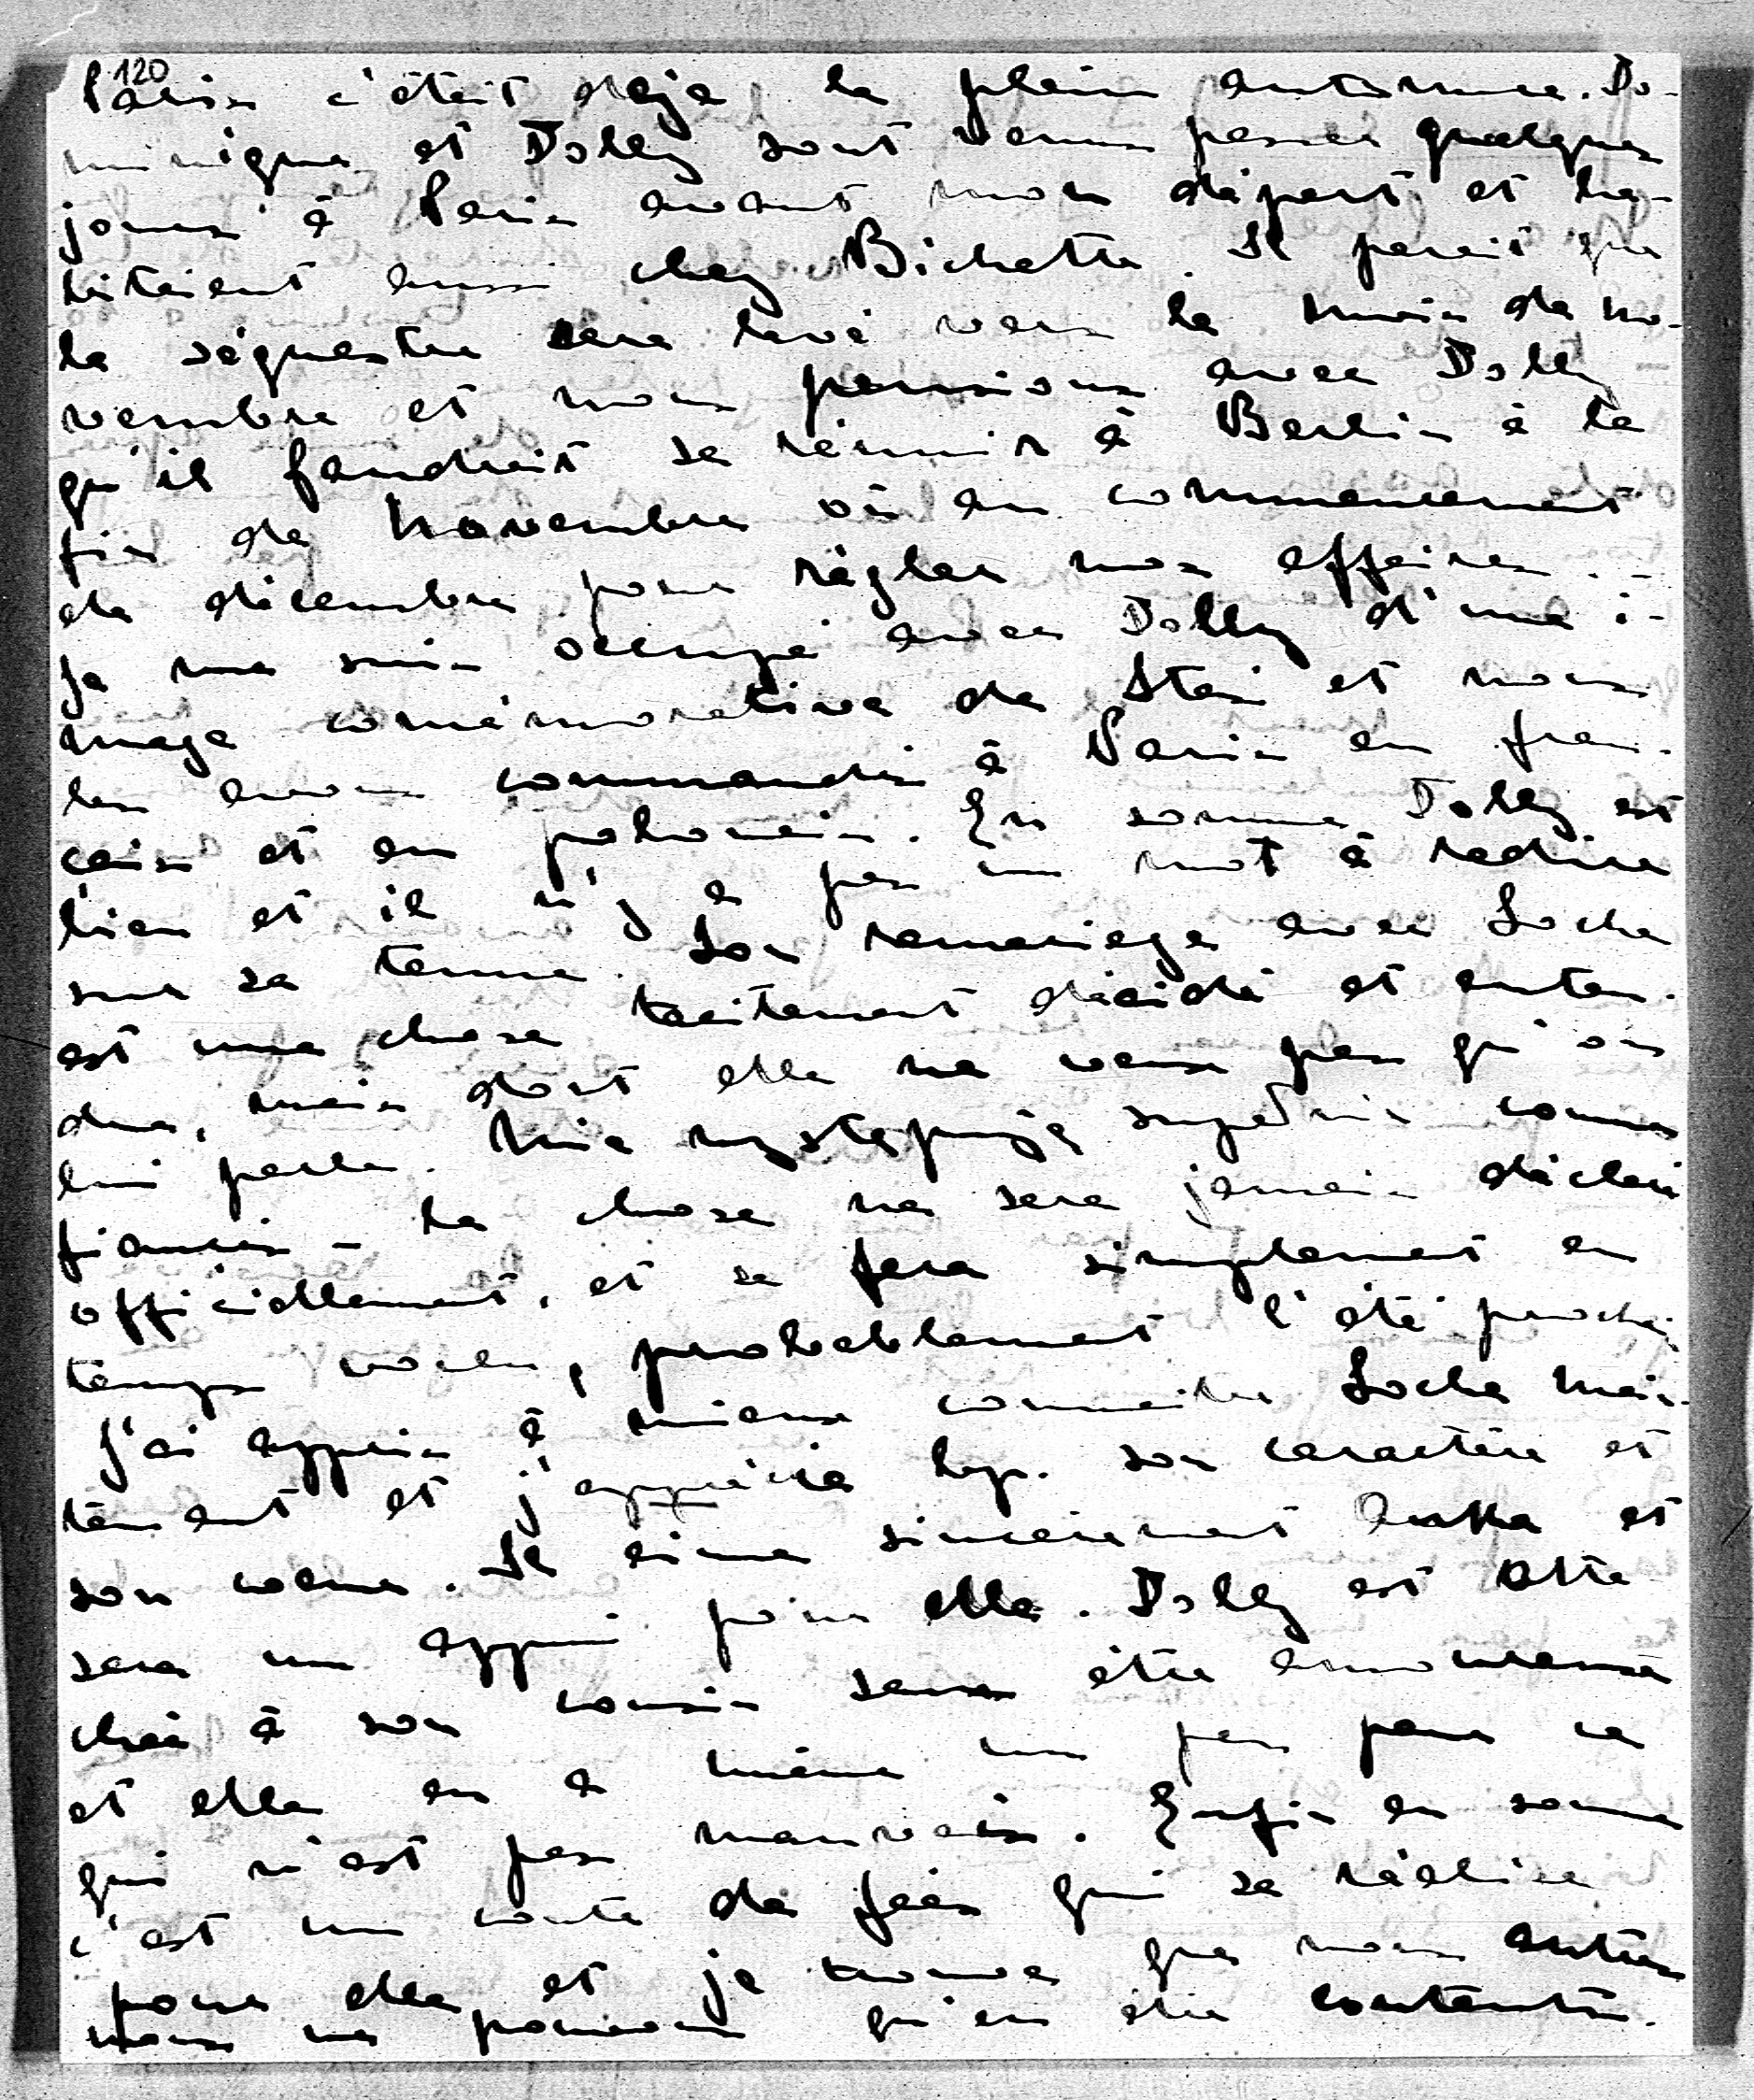 120
Paris c'était déjà le plein automne. Do-
minique et Dolly sont venus passer quelques
jours à Paris avant mon départ et ha-
bitaient aussi chez Bichette. Il parait que
le séquestre sera levé vers le mois de no-
vembre et nous pensions avec Dolly
qu'il faudrait se réunir à Berlin à la
fin de novembre où au commencement
de décembre pour régler nos affaires. -
Je me suis occupé avec Dolly d'une i-
mage comémorative de Staś et nous
les avons commandés à Paris en fran-
çais et en polonais. En somme Dolly est
bien et il n'y a pas un mot à redire
sur sa tenue. Son remariage avec Locha
est une chose tacitement décidé et enten-
due, mais dont elle ne veux pas qu'on
lui parle. Nie występują zupełnie comme
fiancés - La chose ne sera jamais déclaré
officiellement, et se fera simplement en
temps voulu, probablement l'été prochain
J'ai appris à mieux connaitre Locha main-
tenant et j'apprécie bcp. son caractère et
son coeur. Il aime sincerement et
sera un appui pour elle. Dolly est atta
chée à son cousin sans être amoureuse
et elle en a même un peu peur ce
qui n'est pas mauvais. Enfin en somme
c'est un conte de fées qui se réalise
pour elle et je trouve que nous autres
nous ne pouvons qu'en être contents.